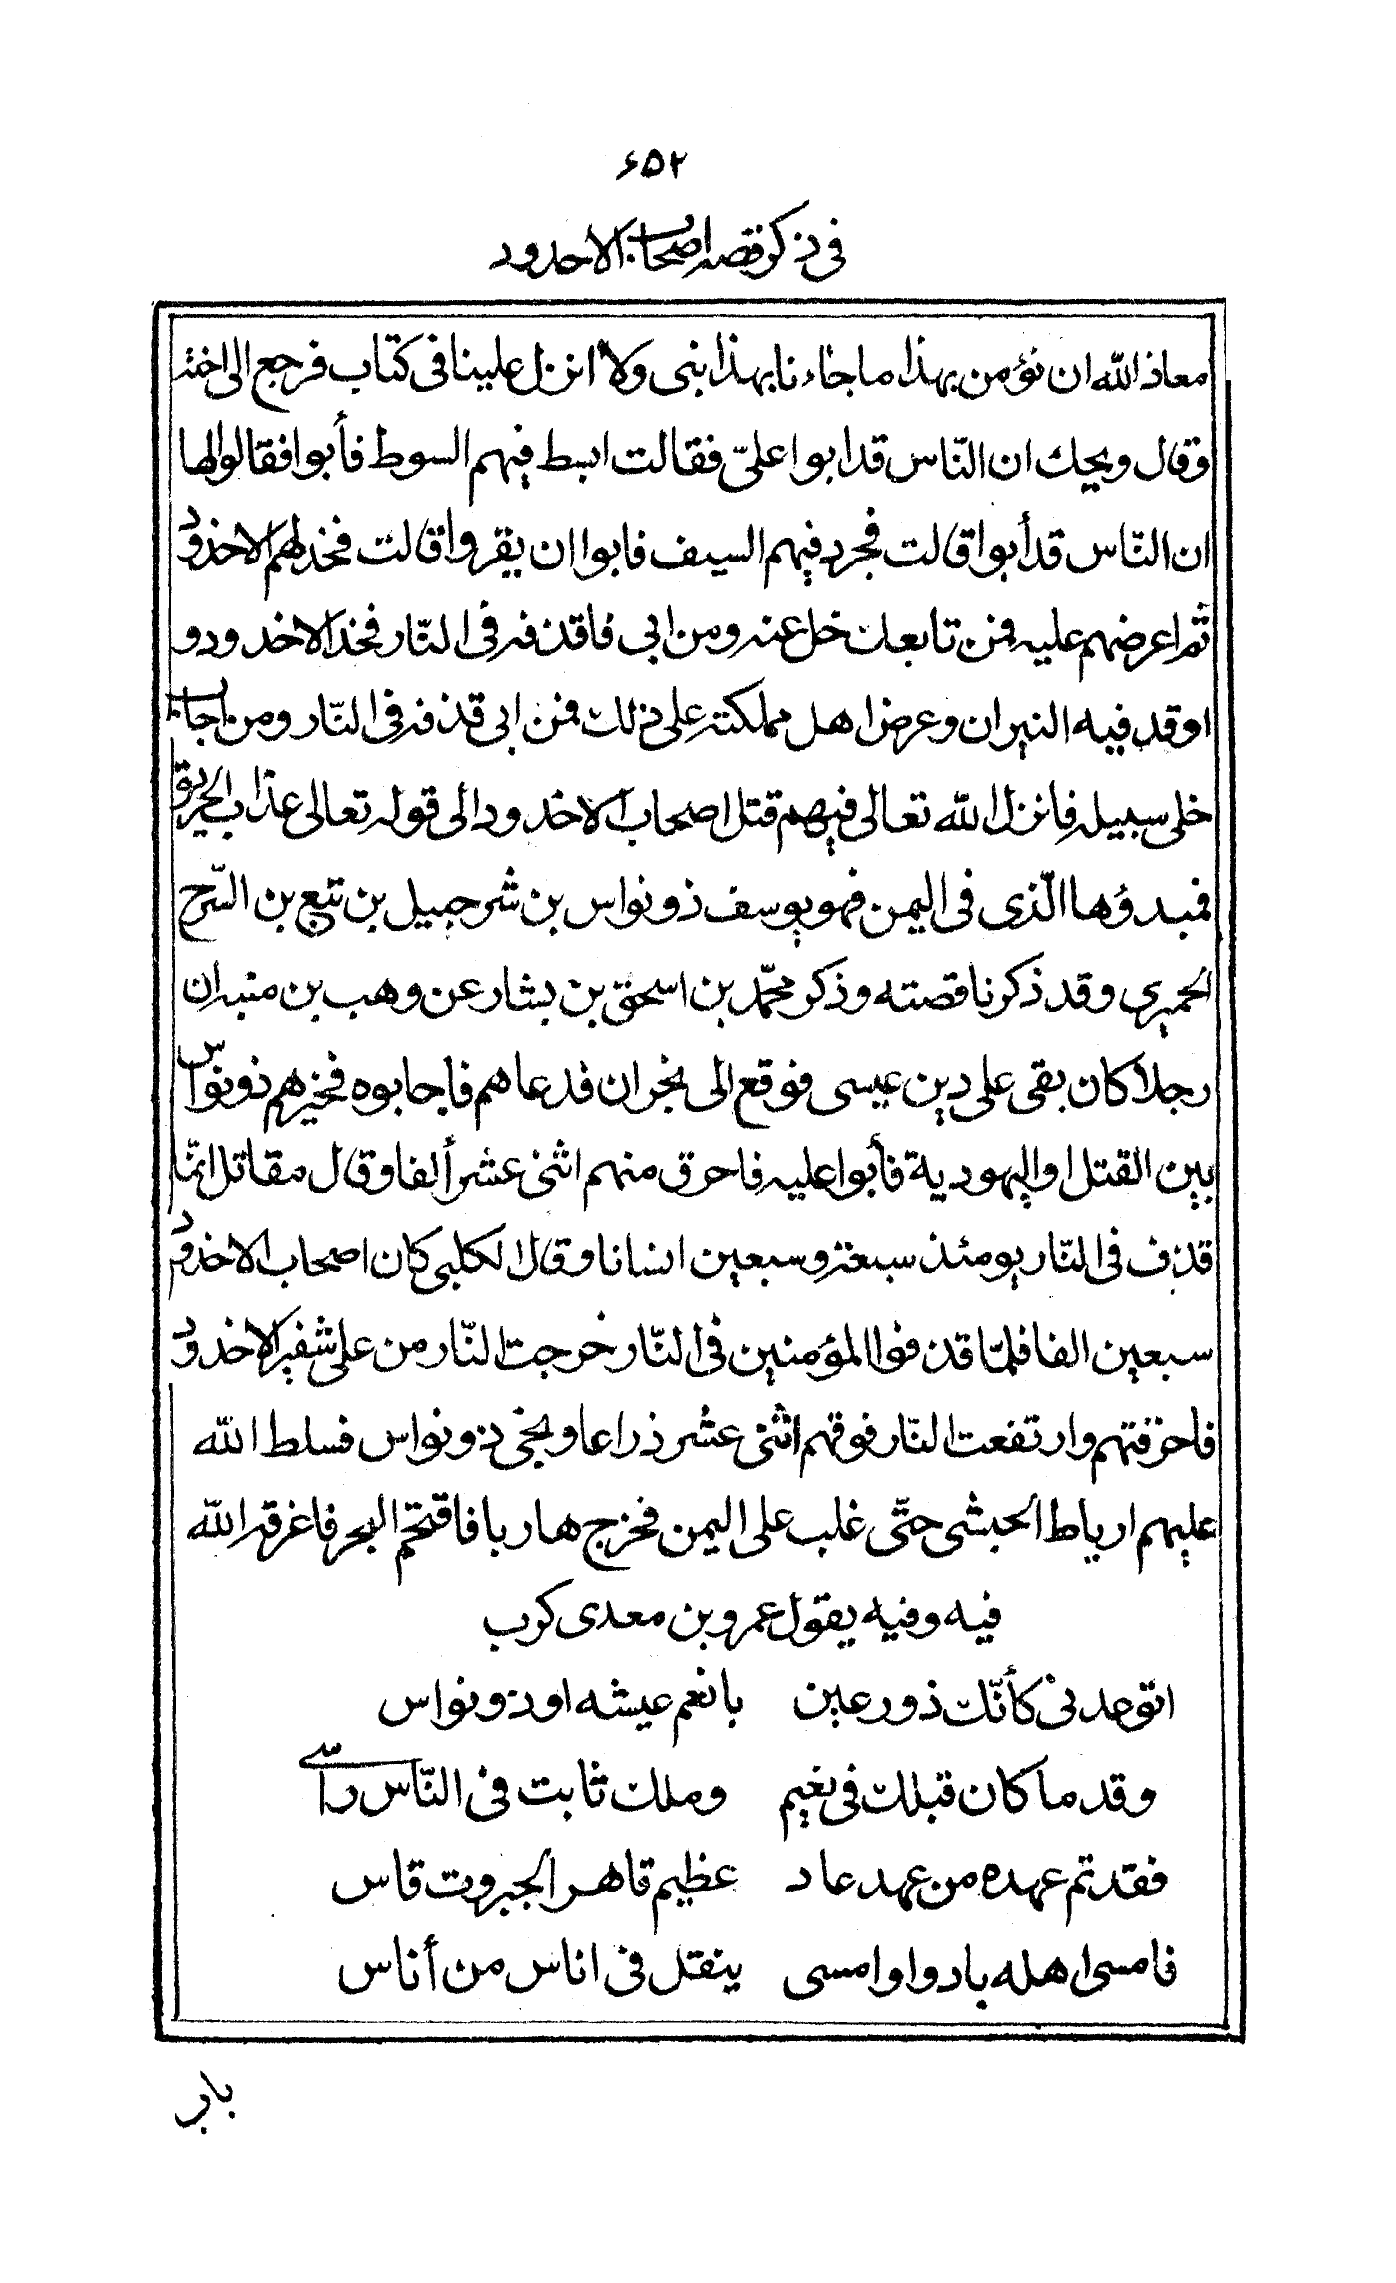 ۶۵۲
فى ذكر قصه اصحاب الاخدود
معاذ الله ان نؤمن بهذا ما جاءنا بهذا نبى ولا انزل علينا فى كتاب فرجع الى اخته
وقال ويحك ان النّاس قد ابوا علىّ فقالت ابسط فيهم السوط فأبوا فقالوا لها
ان النّاس قد أبوا قالت فجرد فيهم السيف فابوا ان يقروا قالت فخد لهم الاخدود
ثم اعرضهم عليه فمن تابعك خل عنه ومن ابى فاقذفه فى النّار فخد الاخدود و
اوقد فيه النيران وعرض اهل مملكته على ذلك فمن ابى قذفه فى النّار ومن اجاب
خلى سبيله فانزل الله تعالى فيهم قتل اصحاب الاخدود الى قوله تعالى عذاب الحريق
فمبدؤها الّذى فى اليمن فهو يوسف ذو نواس بن شرحبيل بن تبّع بن السّرح
الحميرى وقد ذكرنا قصته وذكر محمّد بن اسحق بن بشار عن وهب بن منبه ان
رجلا كان بقى على دين عيسى فوقع الى نجران فدعاهم فاجابوه فخيرهم ذو نواس
بين القتل او اليهودية فأبوا عليه فاحرق منهم اثنى عشر ألفا وقال مقاتل انمّا
قذف فى النّار يومئذ سبعة وسبعين انسانا وقال الكلبى كان اصحاب الاخدود
سبعين الفا فلمّا قذفوا المؤمنين فى النّار خرجت النّار من على شفير الاخدود
فاحرقتهم وارتفعت النّار فوقهم اثنى عشر ذراعا ونجى ذو نواس فسلط الله
عليهم ارياط الحبشى حتّى غلب على اليمن فخرج هاربا فاقتحم البحر فاغرقه الله
فيه وفيه يقول عمرو بن معدى كرب
اتوعدنى كأنّك ذو رعين بانعم عيشه او ذو نواس
وقد ما كان قبلك فى نعيم وملك ثابت فى النّاس راسى
فقد تم عهده من عهد عاد عظيم قاهر الجبروت قاس
فامسى اهله بادوا وامسى ينقل فى اناس من أناس
باب